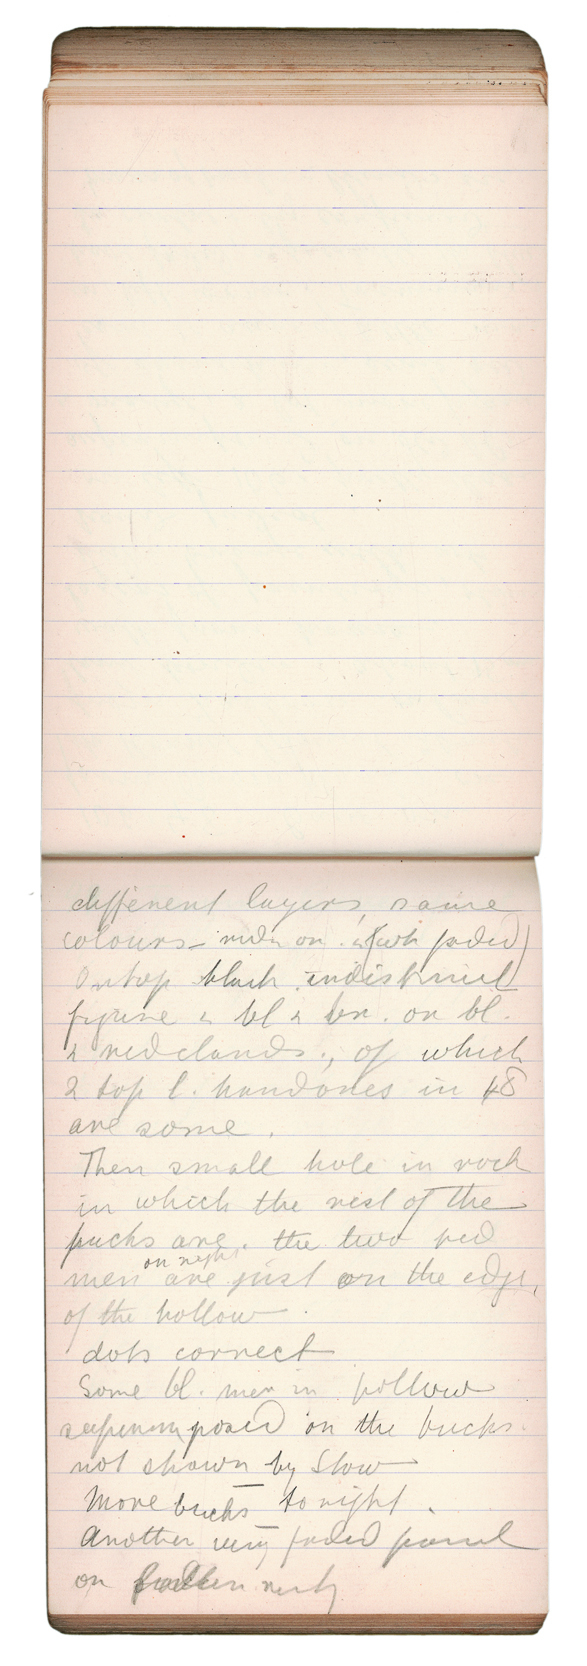 different layers, same
colours – on (with faded)
On top black indistinct
figure & bl & br. on bl.
& red elands, of which
2 top l. hand ones in 48
are some.
Then small hole in rock
in which the rest of the
bucks are. the two red
on right
men are just on the edge,
of the hollow.
dots correct
Some bl. men in hollow
superimposed on the bucks.
not shown by Stow
More bucks to right.
Another very faded panel
on fallen